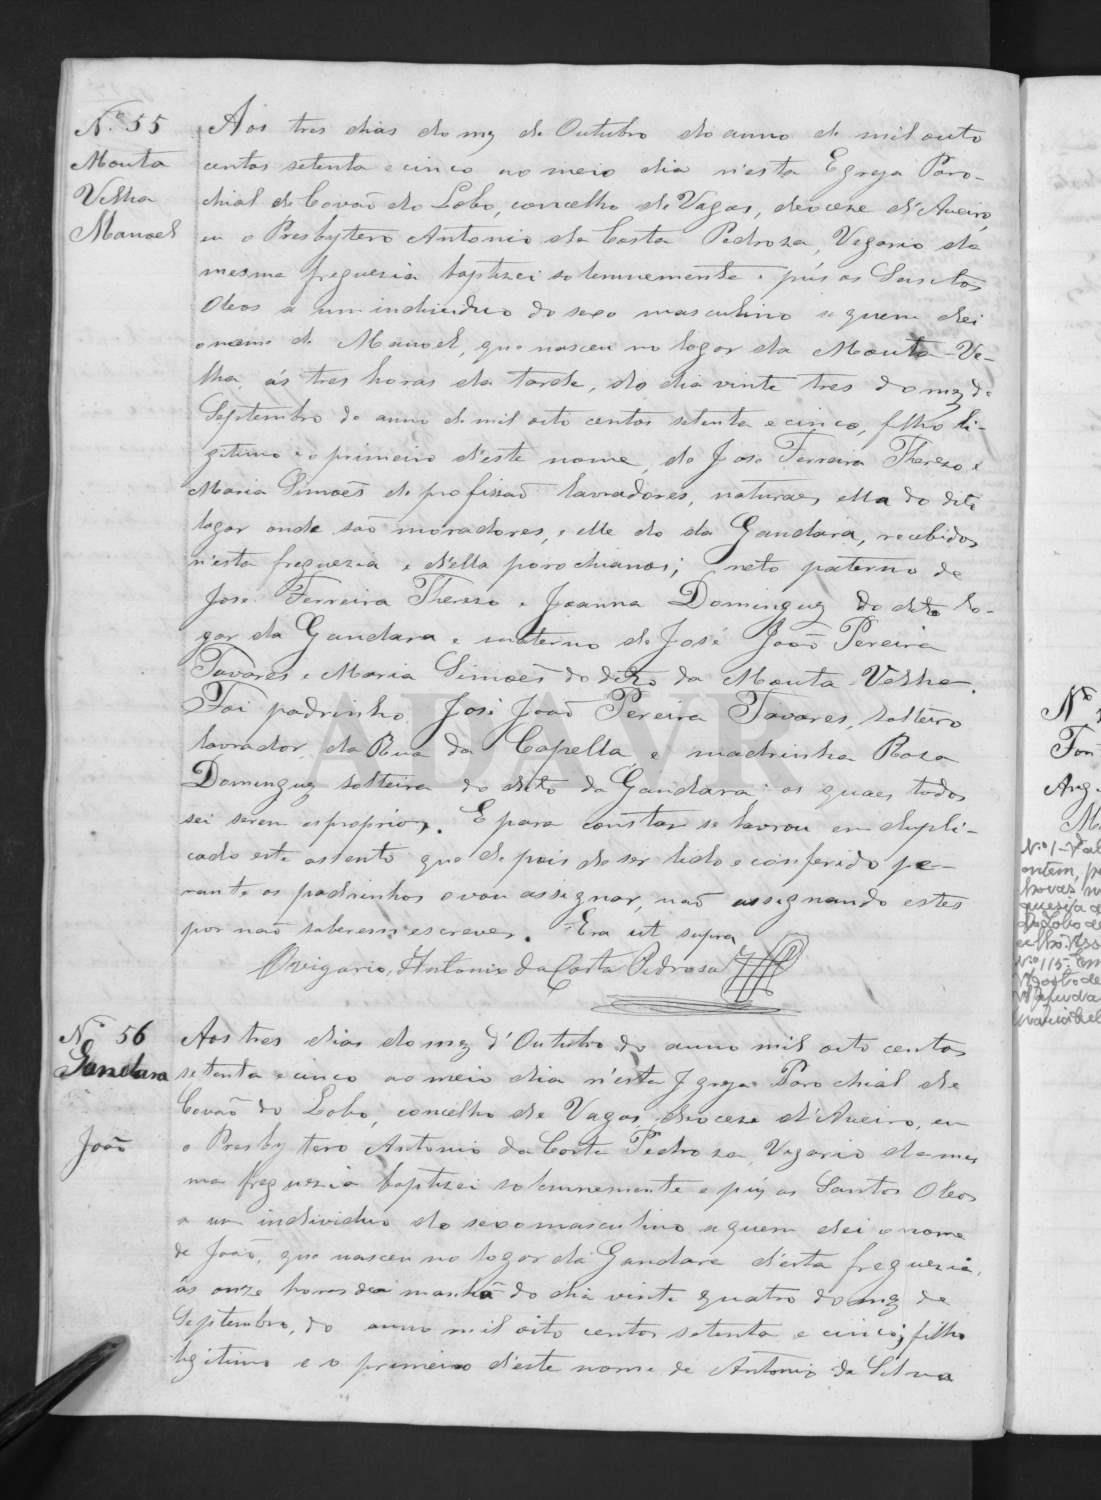 Nº 55
Mouta
Velha
Manoel
Aos tres dias do mez de Outubro do anno de mil outo
centos setenta e cinco ao meio dia n'esta Egreja Paro-
chial de Covão do Lobo, concelho de Vagos, diocese d'Aveiro,
eu o Presbytero Antonio da Costa Pedrosa, Vigario da
mesma freguezia baptizei solemnemente e puis os Sanctos
Oleos a um individuo do sexo masculino a quem dei
o nome de Manoel, que nasceu no logar da Mouta-Ve-
lha, ás tres horas da tarde, do dia vinte tres do mez de
Septembro do anno de mil oito centos setenta e cinco, filho li-
gitimo e o primeiro d'este nome, de José Ferreira Therezo e
Maria Simoẽs de profissaõ lavradores, naturaes ella do dito
logar onde saõ moradores, e elle do da Gandara, recebidos
n'esta freguezia e d'ella parochianos; neto paterno de
José Ferreira Therezo e Joanna Domingues do dito lo-
gar da Gandara e materno de José João Pereira
Tavares e Maria Simoẽs do dito da Mouta Velha.
Foi padrinho José Joaõ Pereira Tavares, solteiro
lavrador, da Rua da Capella, e madrinha Rosa
Domingues solteira do dito da Gandara; os quaes todos
sei serem os proprios. E para constar se lavrou em dupli-
cado este assento que depois de ser lido e conferido pe-
rante os padrinhos o vou assignar, naõ assignando estes
por naõ saberem escrever. Era ut supra
O vigario, Antonio da Costa Pedrosa
Nº 56
Gandara
João
Aos tres dias do mez d'Outubro do anno mil oito centos
setenta e cinco ao meio dia n'esta Igreja Parochial de
Covaõ do Lobo, concelho de Vagos, diocese d'Aveiro, eu
o Presbytero Antonio da Costa Pedrosa, Vigario da mes
ma freguezia baptizei solemnemente e puz os Santos Oleos
a um individuo do sexo masculino a quem dei o nome
de João, que nasceu no logar da Gandara d'esta freguezia,
ás onze horas da manhã do dia vinte quatro do mez de
Septembro, do anno mil oito centos setenta e cinco; filho
ligitimo e o primeiro d'este nome de Antonio da Silva
ADAVR
Nº